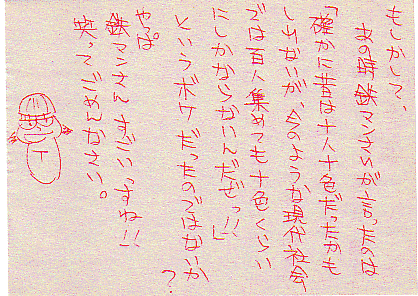 もしかして、、
あの時鉄マンさんが言ったのは
「確かに昔は十人十色だったかも
しれないが、今のような現代社会
では百人集めても十色くらい
にしかならないんだぜっ!!」
というボケだったのではないか?
やっぱ
鉄マンさんすごいっすね!!
笑ってごめんなさい。
T